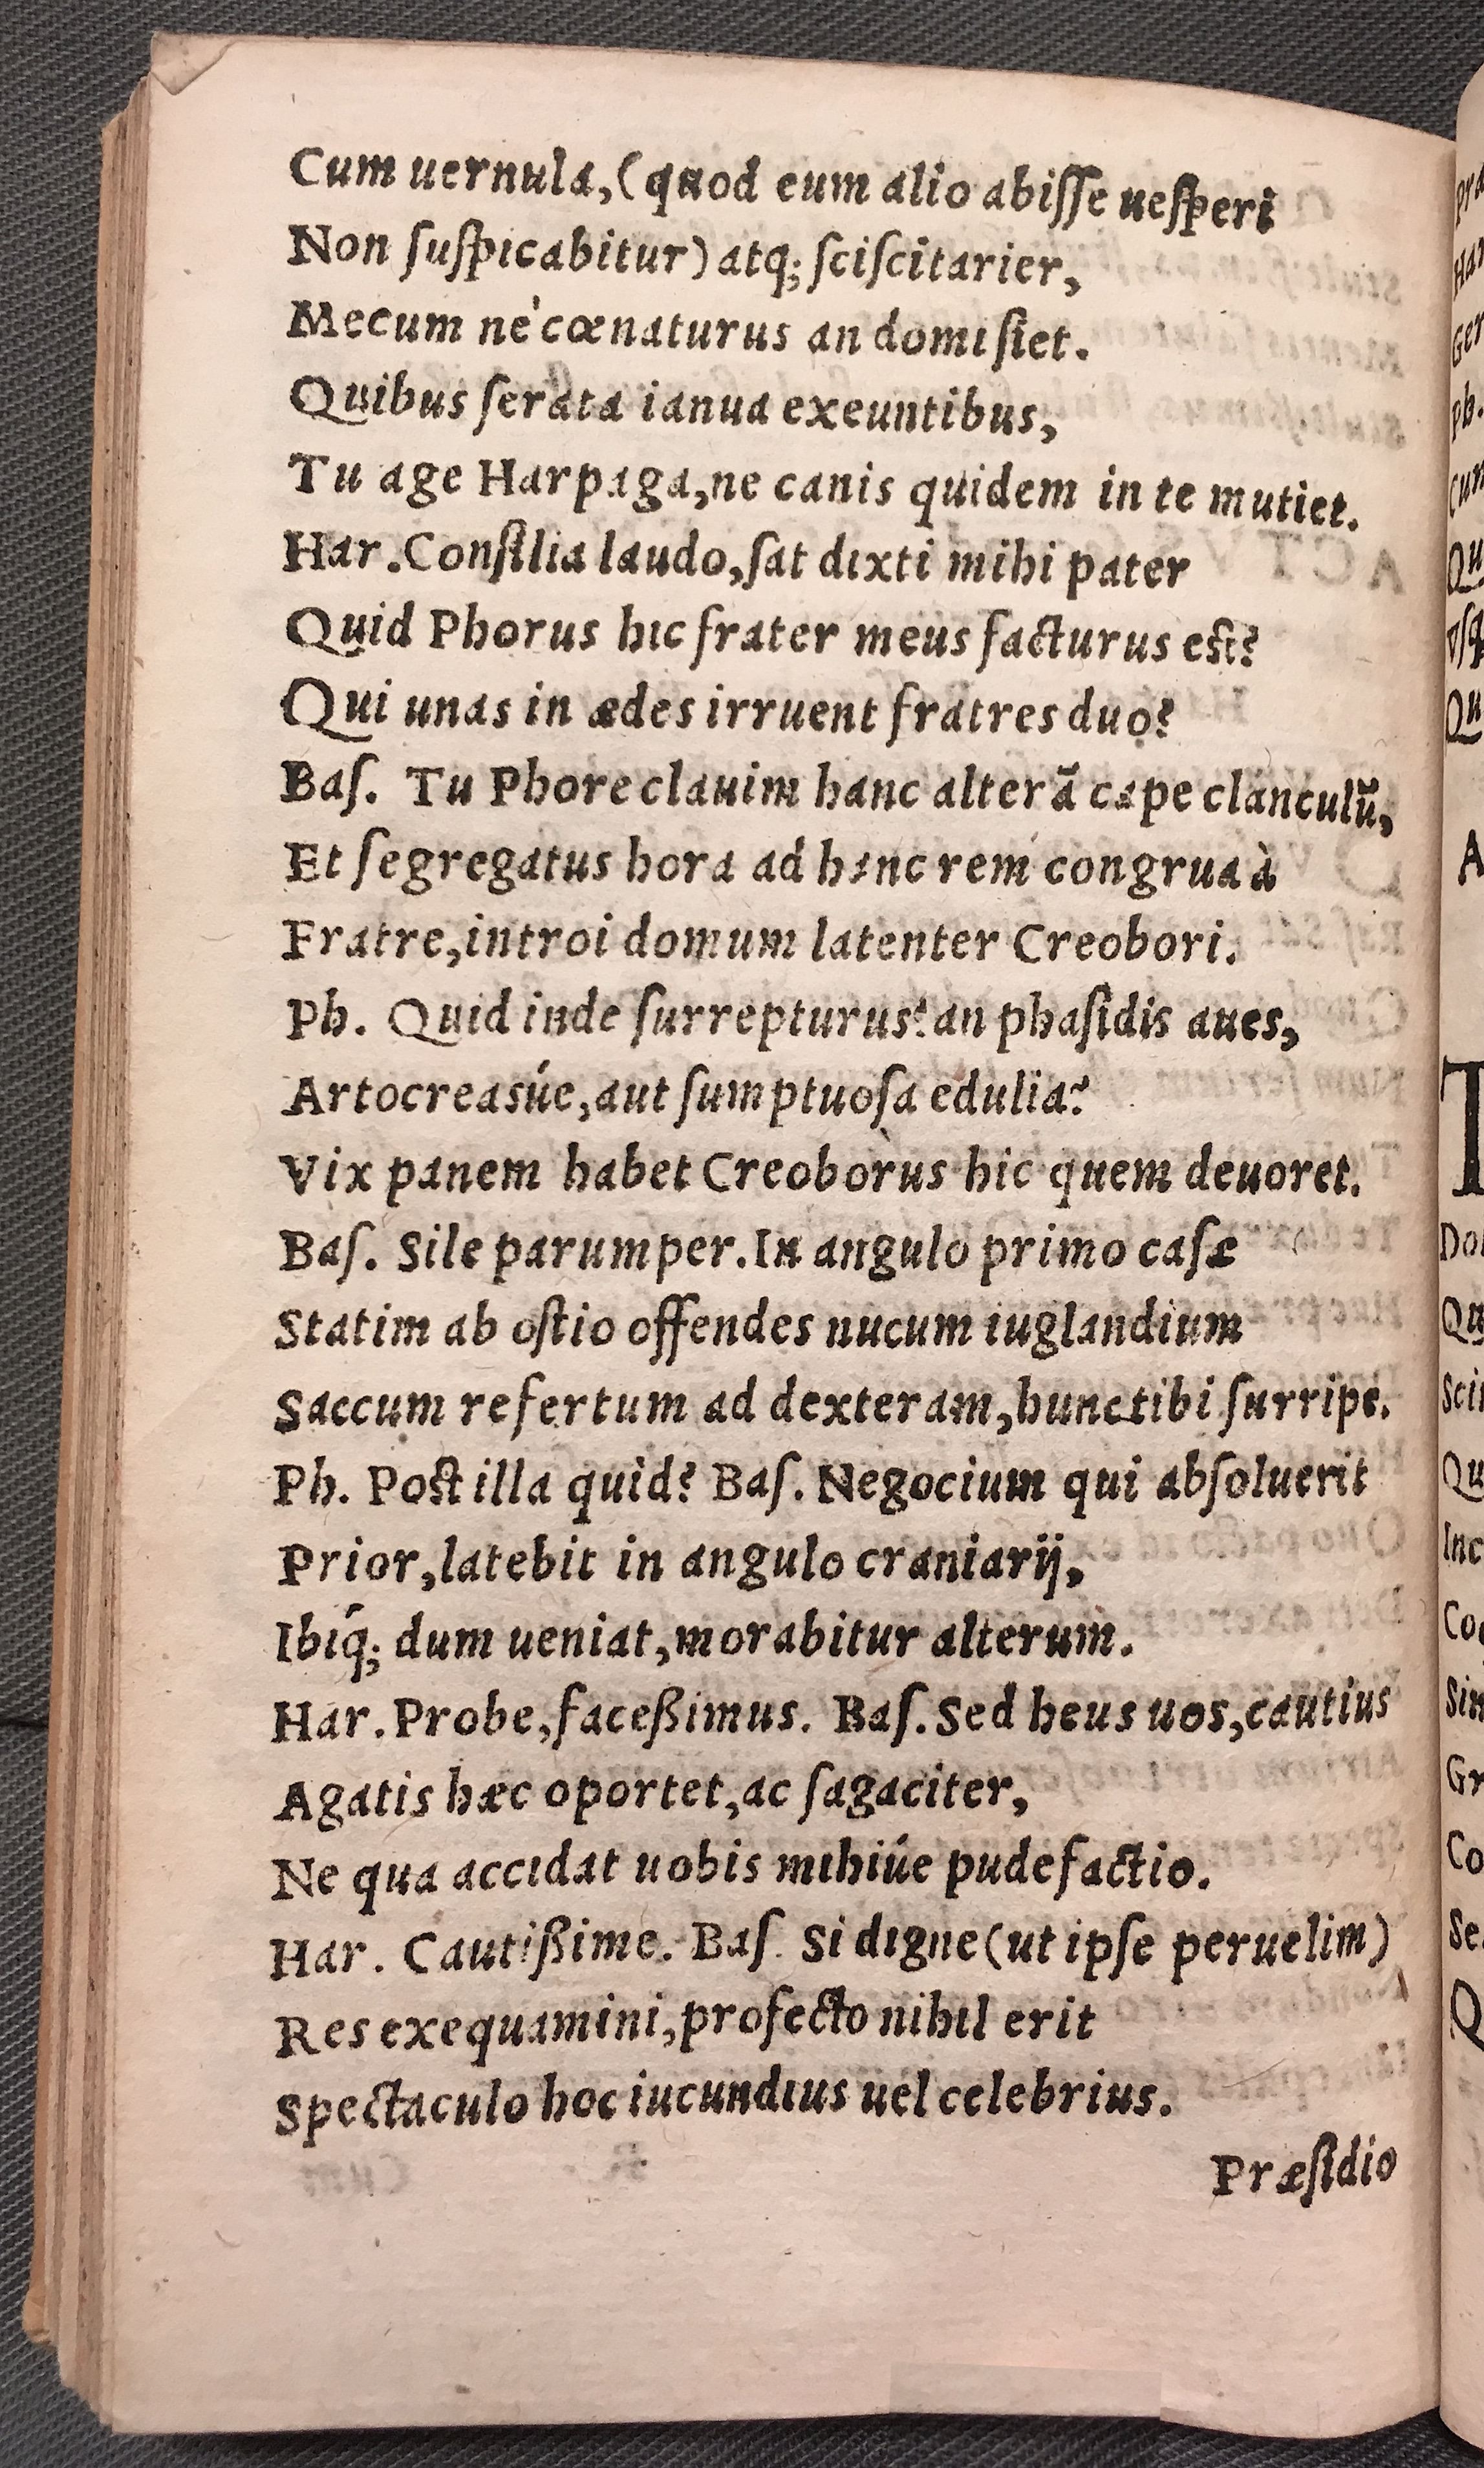 Cum uernula, (quod eum alio abiſſe ueſperi
Non ſuſpicabitur) atq; ſciſcitarier,
Mecum ne' cœnaturus an domi ſiet.
Quibus ſerata ianua exeuntibus,
Tu age Harpaga, ne canis quidem in te mutiet.
Har. Conſilia laudo, ſat dixti mihi pater
Quid Phorus hic frater meus facturus est?
Qui unas in ædes irruent fratres duo?
Baſ. Tu Phore clauim hanc alterā cape clanculū,
Et ſegregatus hora ad hanc rem congrua à
Fratre, introi domum latenter Creobori.
Ph. Quid inde ſurrepturus? an phaſidis aues,
Artocreasúe, aut ſumptuoſa edulia?
Vix panem habet Creoborus hic quem deuoret.
Baſ. Sile parumper. In angulo primo caſæ
Statim ab oſtio offendes nucum iuglandium
Saccum refertum ad dexteram, hunc tibi ſurripe.
Ph. Post illa quid? Baſ. Negocium qui abſoluerit
Prior, latebit in angulo craniarij,
Ibiq́; dum ueniat, morabitur alterum.
Har. Probe, faceßimus. Baſ. Sed heus uos, cautius
Agatis hæc oportet, ac ſagaciter,
Ne qua accidat uobis mihiúe pudefactio.
Har. Cautißime. Baſ. Si digne (ut ipſe peruelim)
Res exequamini, profecto nihil erit
Spectaculo hoc iucundius uel celebrius.
Præſidio